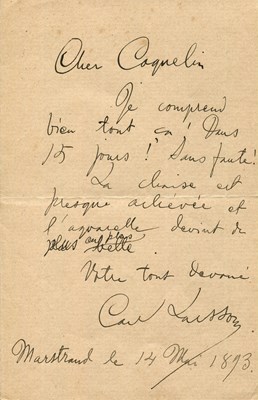 Cher Coquelin
Je comprend
bien tout ça! Dans
15 jours! Sans faute!
La chaise est
presque achevée et
l'aquarelle devint de
plus en plus
belle.
Votre tout devoué
Carl Larsson
Marstrand le 14 Mai 1893.